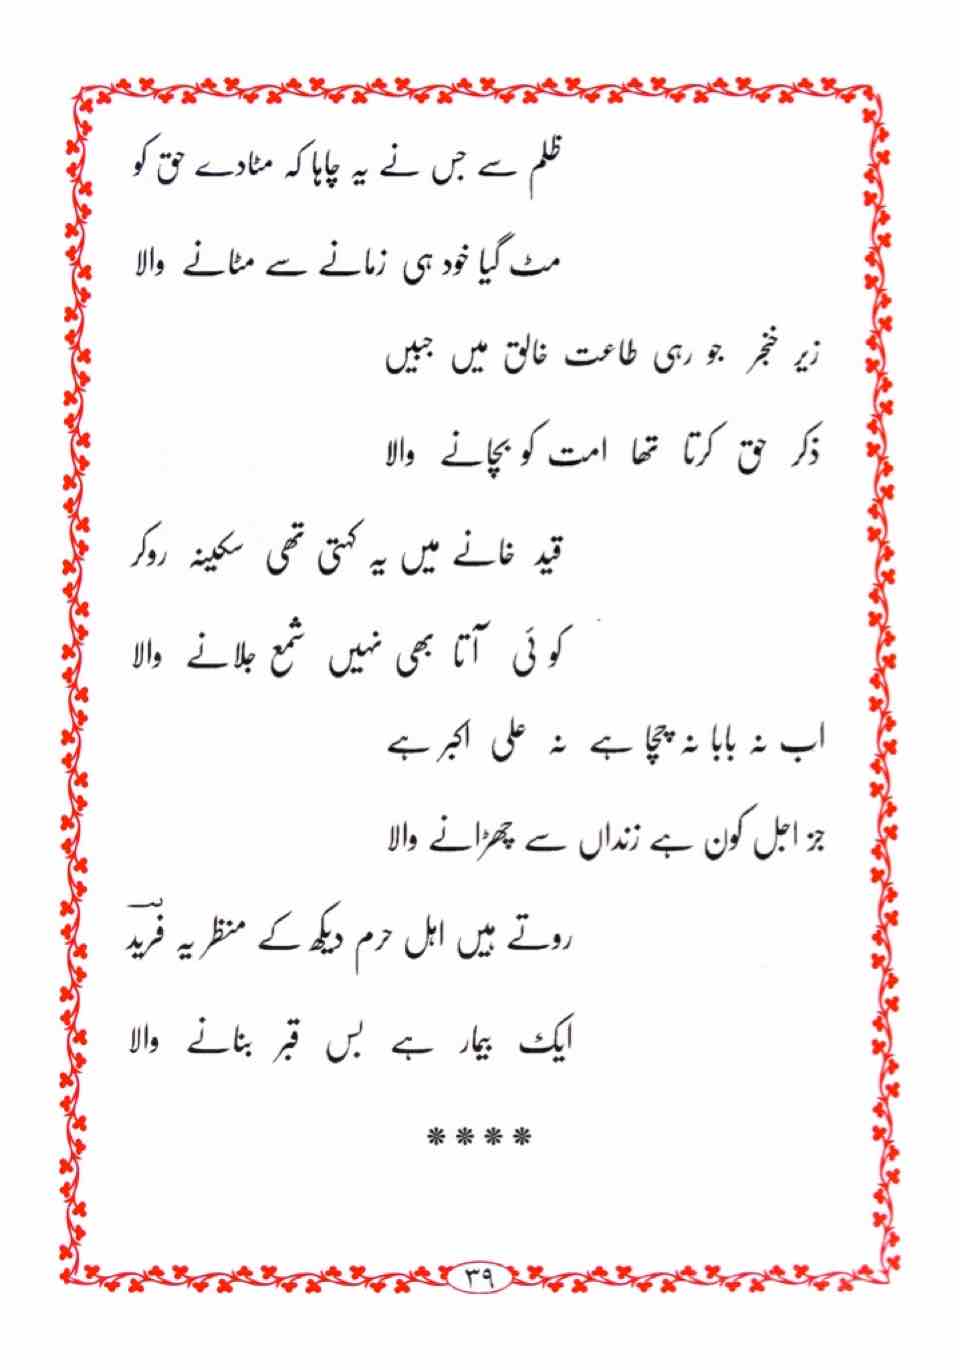 ظلم سے جس نے یہ چاہا کہ مٹادے حق کو
مٹ گیا خود ہی زمانے سے مٹانے والا
زیر خنجر جو رہی طاعت خالق میں جبیں
ذکر حق کرتا تھا امت کو بچانے والا
قید خانے میں یہ کہتی تھی سکینہ روکر
کوئی آتا بھی نہیں شمع جلانے والا
اب نہ بابا نہ چچا ہے نہ علی اکبر ہے
جز اجل کون ہے زنداں سے چھڑانے والا
روتے ہیں اہل حرم دیکھ کے منظر یہ فرید
ایک بیمار ہے بس قبر بنانے والا
****
۳۹